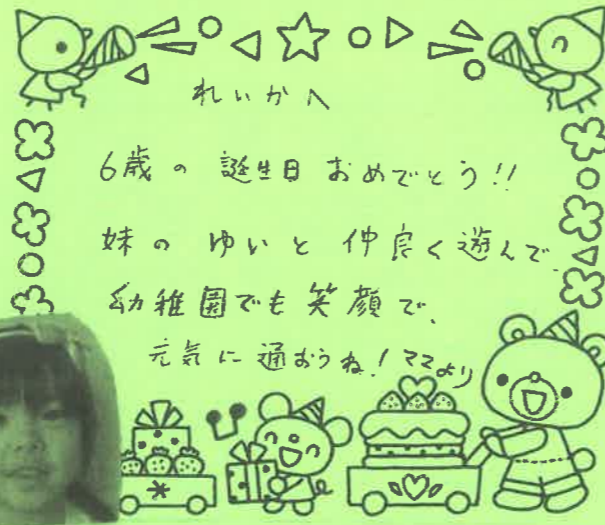 れいかへ
6歳の 誕生日 おめでとう!!
妹の ゆいと 仲良く遊んで、
幼稚園でも 笑顔で、
元気に通おうね! ママより